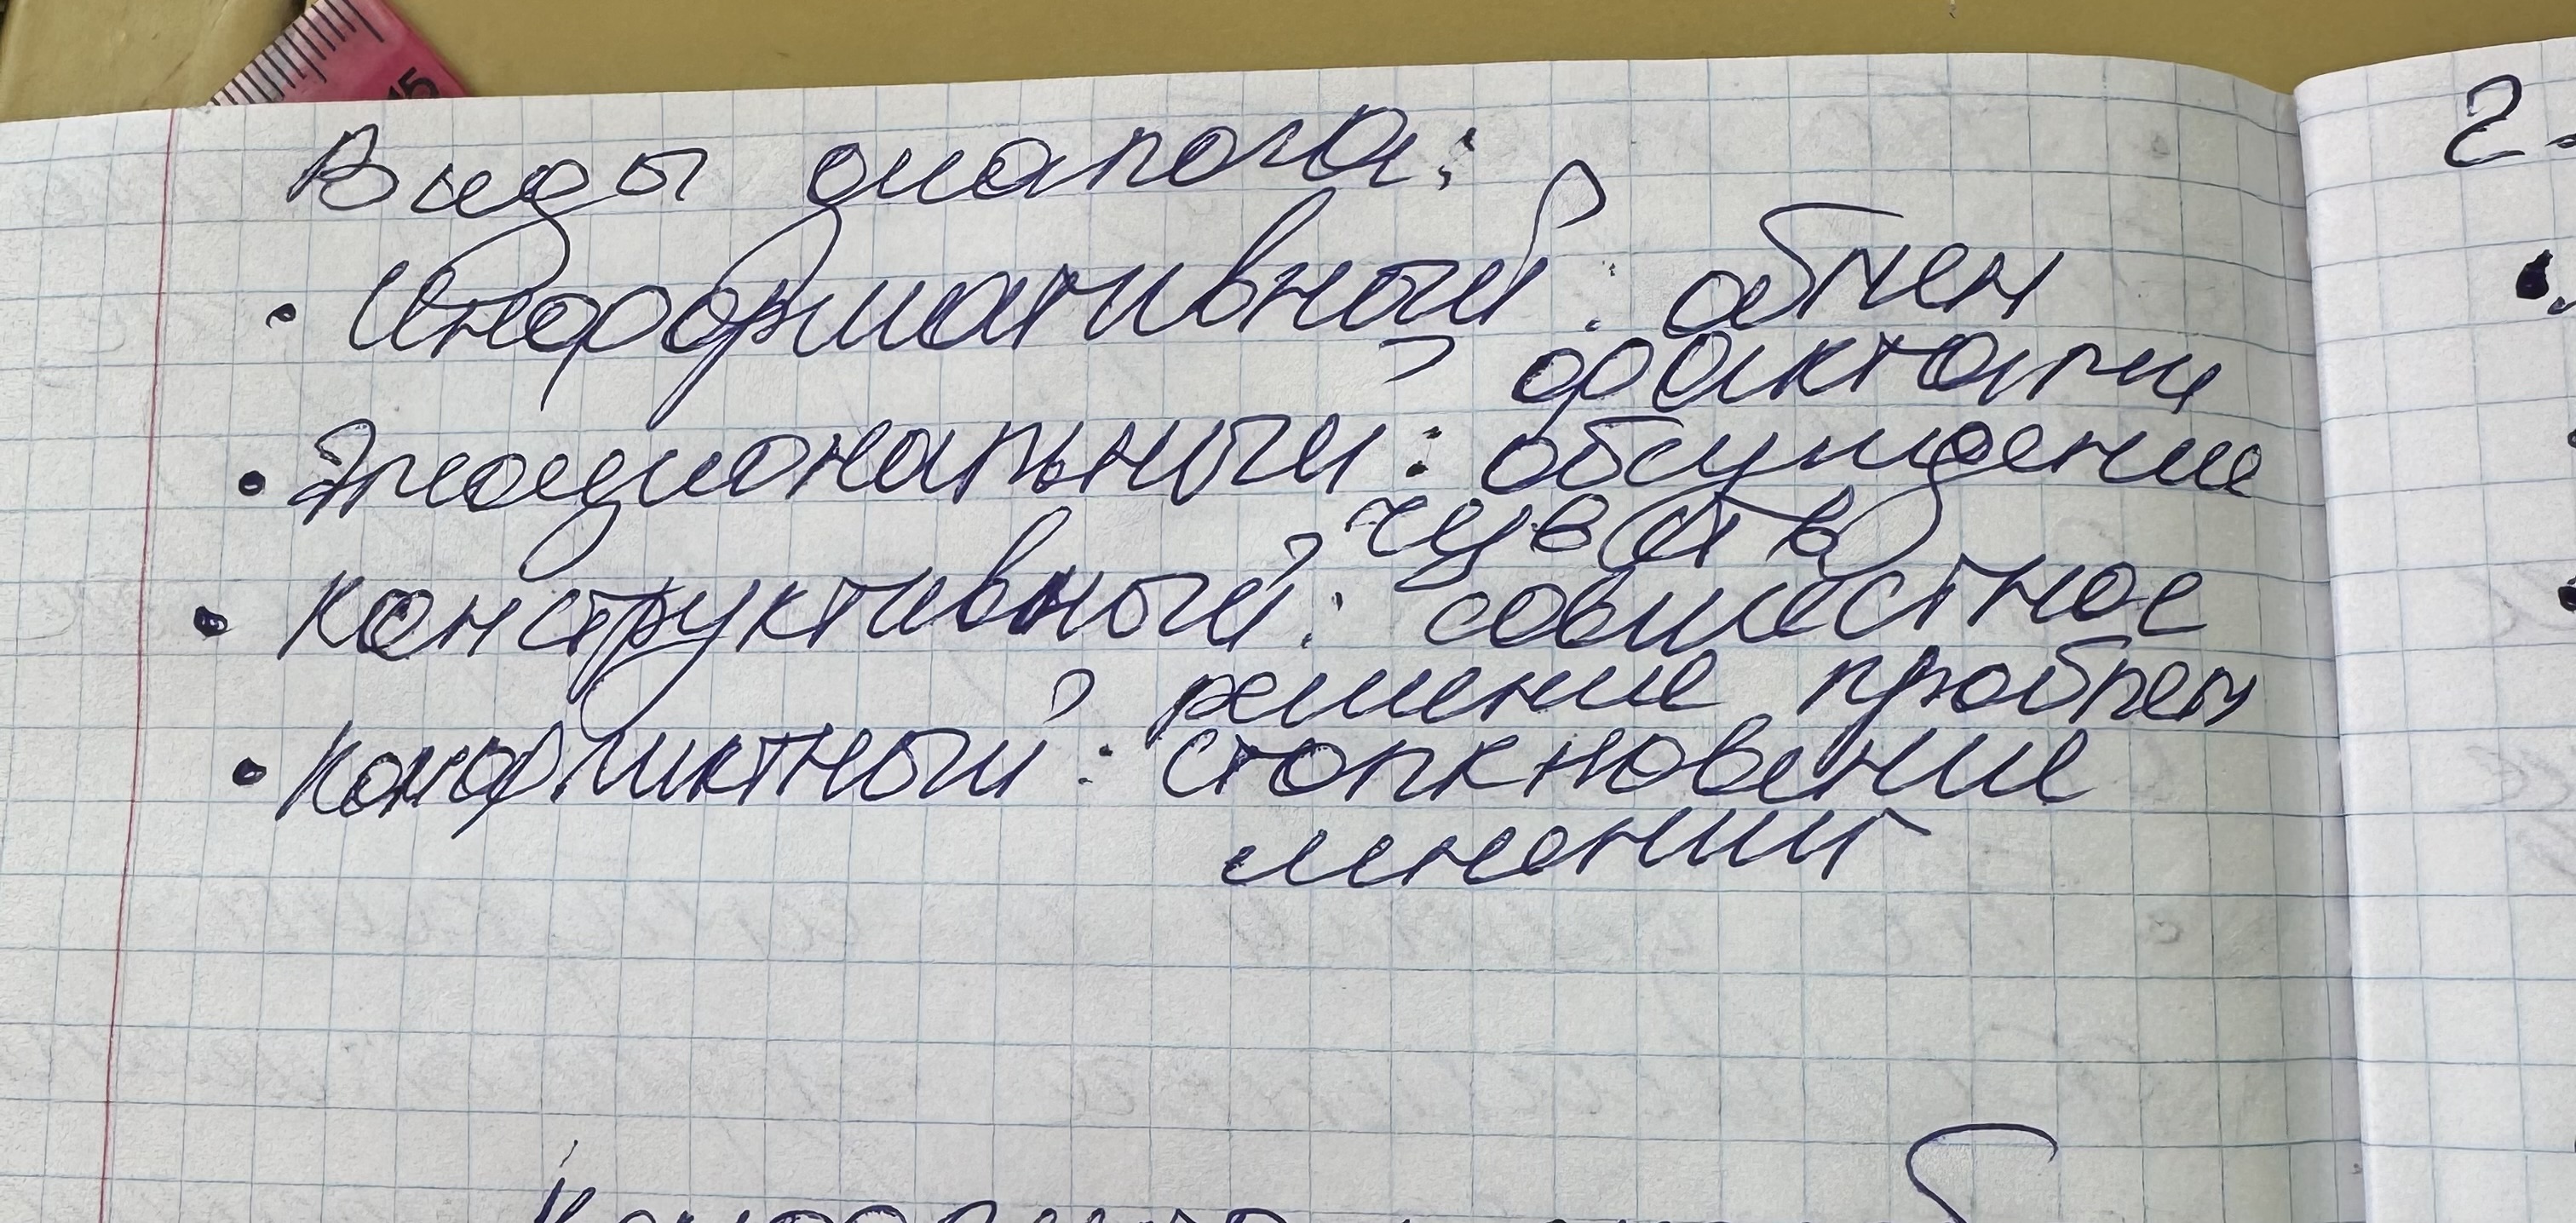 Виды диалога:
• Информативный: обмен
фактами
• Эмоциональный: обсуждение
чувств
• Конструктивный: совместное
решение проблем
• Конфликтный: столкновение
мнений
15
2